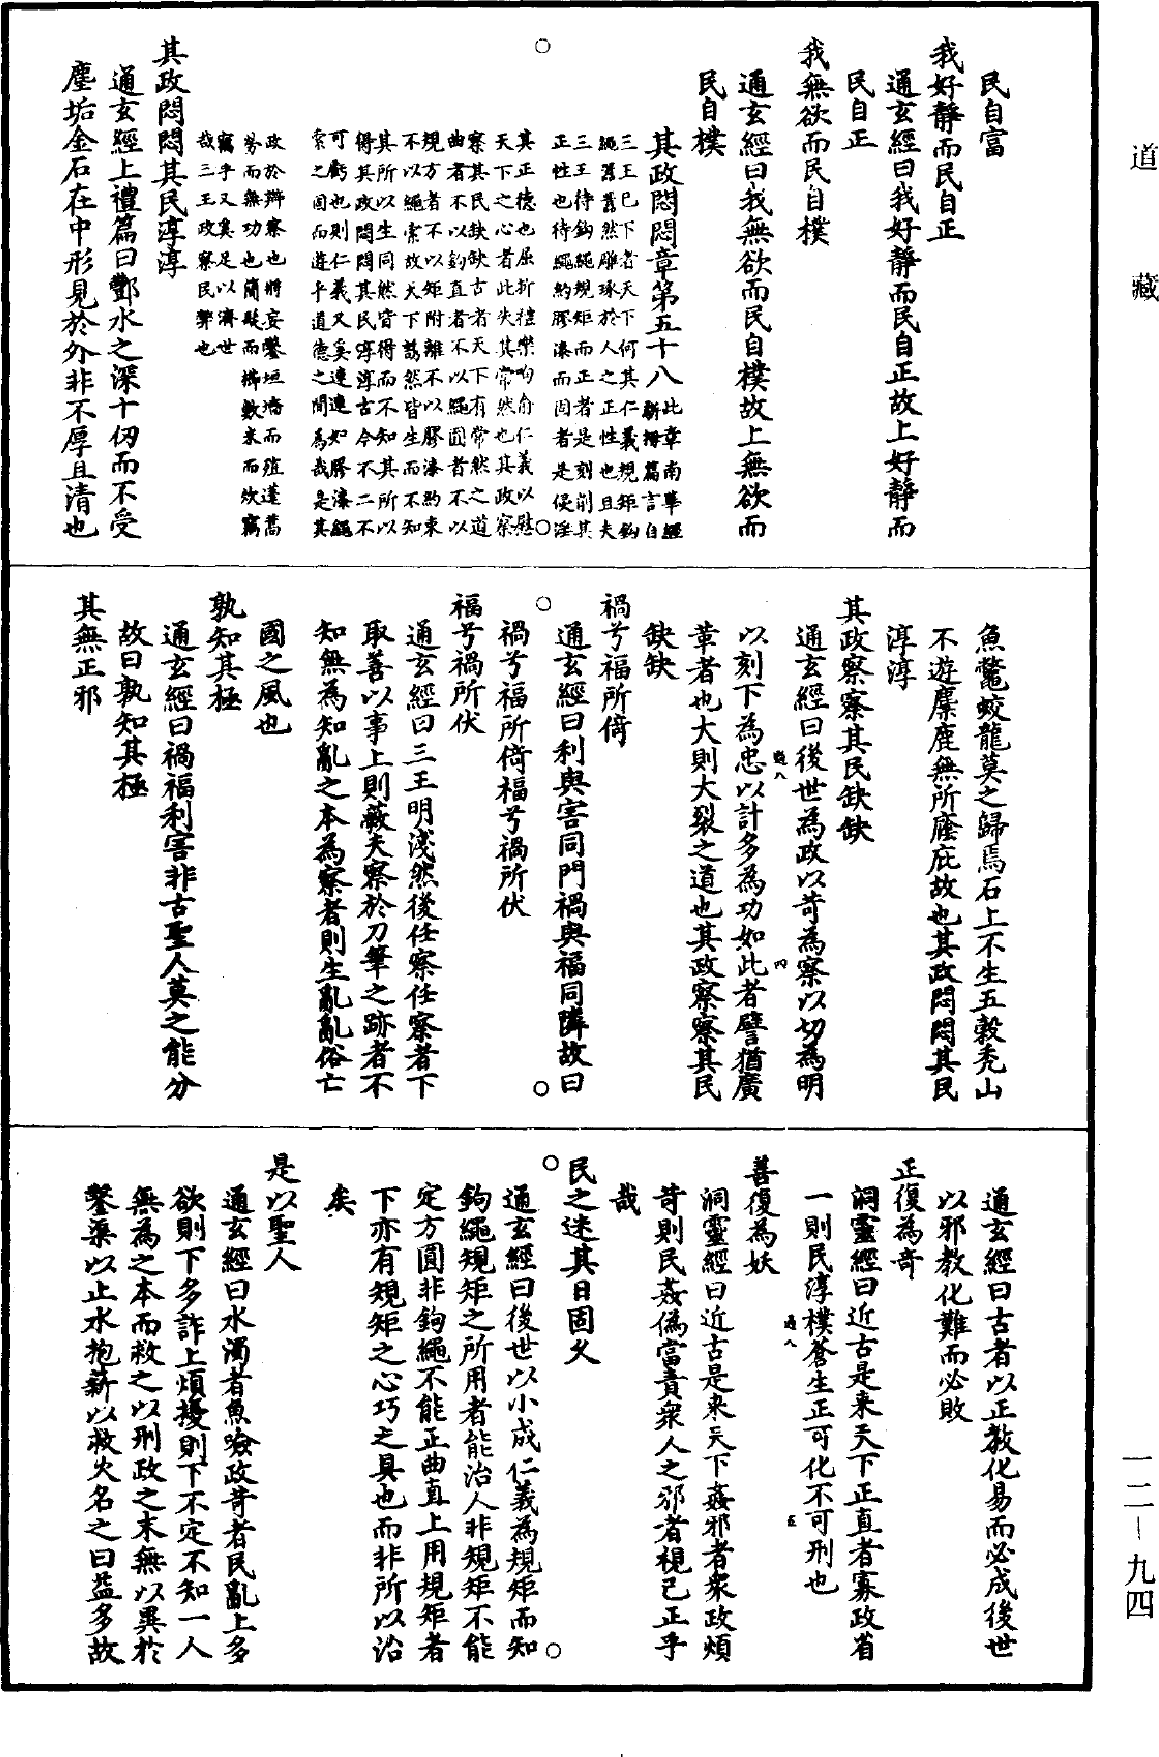 道藏
民自富
我好靜而民自正
通玄經曰我好靜而民自正故上好靜而
民自正
我無欲而民自樸
通玄經曰我無欲而民自樸故上無欲而
民自樸
其政悶悶章第五十八
此章南華經
駢拇篇言自
三王已下者天下何其仁義規矩鉤
繩囂囂然雕琢於人之正性也且夫
三王待鉤繩規矩而正者是刻削其
正性也待繩約膠漆而固者是侵淫
其正德也屈折禮樂呴俞仁義以慰
天下之心者此失其常然也其政察
察其民缺缺古者天下有常然之道
曲者不以鉤直者不以繩圓者不以
規方者不以矩附離不以膠漆約束
不以繩索故天下誘然皆生而不知
其所以生同然皆得而不知其所以
得其政悶悶其民淳淳古今不二不
可虧也則仁義又奚連連如膠漆纆
索之固而遊乎道德之間為哉是其
政於辯察也將妄鑿垣墻而殖蓬蒿
勞而無功也簡髮而櫛數米而炊竊
竊乎又奚足以濟世
哉三王政察民弊也
其政悶悶其民淳淳
通玄經上禮篇曰酆水之深十仞而不受
塵垢金石在中形見於外非不厚且清也
魚鱉蛟龍莫之歸焉石上不生五穀禿山
不遊麋鹿無所蔭庇故也其政悶悶其民
淳淳
其政察察其民缺缺
通玄經曰後世為政以苛為察以切為明
以刻下為忠以計多為功如此者譬猶廣
革者也大則大裂之道也其政察察其民
缺缺
禍兮福所倚
通玄經曰利與害同門禍與福同隣故曰
禍兮福所倚福兮禍所伏
福兮禍所伏
通玄經曰三王明淺然後任察任察者下
取善以事上則蔽夫察於刀筆之跡者不
知無為知亂之本為察者則生亂亂俗亡
國之風也
孰知其極
通玄經曰禍福利害非古聖人莫之能分
故曰孰知其極
其無正邪
通玄經曰古者以正教化易而必成後世
以邪教化難而必敗
正復為奇
洞靈經曰近古是來天下正直者寡政省
一則民淳樸蒼生正可化不可刑也
善復為妖
洞靈經曰近古是來天下姦邪者衆政煩
苛則民姦偽富責衆人之邪者視已正乎
哉
民之迷其日固久
通玄經曰後世以小成仁義為規矩而知
鉤繩規矩之所用者能治人非規矩不能
定方圓非鉤繩不能正曲直上用規矩者
下亦有規矩之心巧之具也而非所以治
矣
是以聖人
通玄經曰水濁者魚噞政苛者民亂上多
欲則下多詐上煩擾則下不定不知一人
無為之本而救之以刑政之末無以異於
鑿渠以止水抱薪以救火名之曰益多故
一二—九四